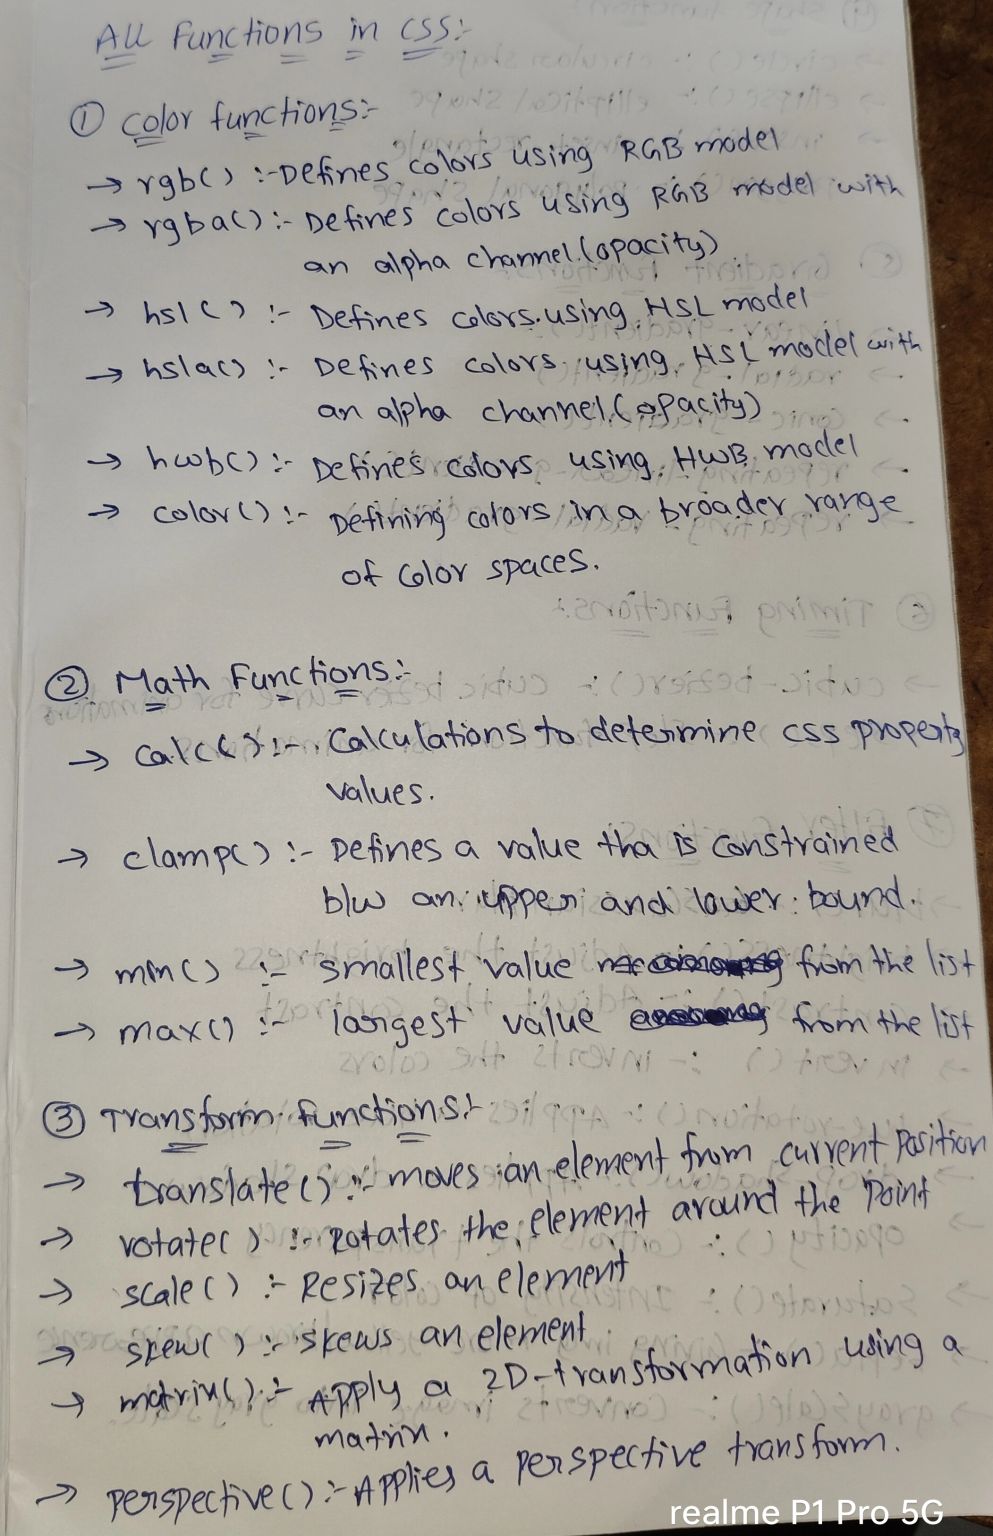 All Functions in CSS:-
① Color functions:-
→ rgb() :- Defines colors using RGB model
→ rgba() :- Defines colors using RGB model with
an alpha channel (opacity)
→ hsl() :- Defines colors using HSL model
→ hsla() :- Defines colors using HSL model with
an alpha channel (opacity)
→ hwb() :- Defines colors using HWB model
→ color() :- Defining colors in a broader range
of color spaces.
② Math Functions:-
→ calc() :- Calculations to determine css property
values.
→ clamp() :- Defines a value tha is constrained
b/w an upper and lower bound.
→ min() :- smallest value from the list
→ max() :- largest value from the list
③ Transform functions:-
→ translate() :- moves an element from current position
→ rotate() :- Rotates the element around the point
→ scale() :- Resizes an element
→ skew() :- skews an element
→ matrix() :- Apply a 2D-transformation using a
matrix.
→ perspective() :- Applies a perspective transform.
realme P1 Pro 5G